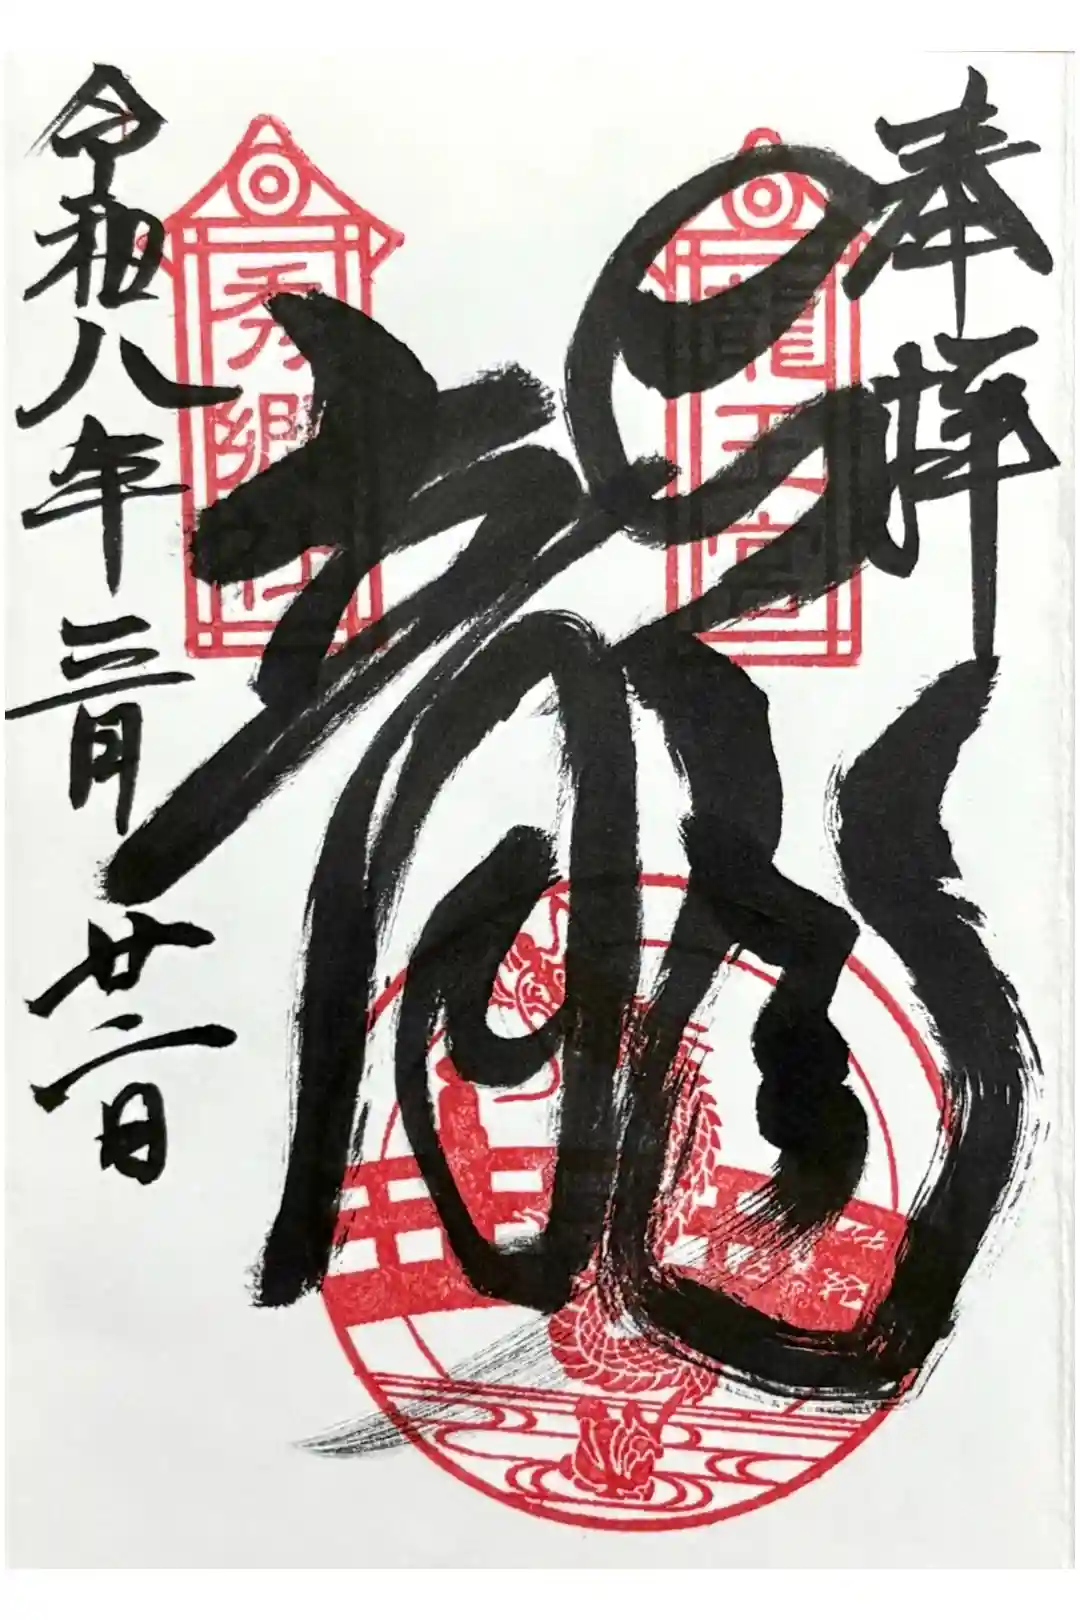 奉拝
龍
龍王宮
秀郷社
令和八年三月廿二日